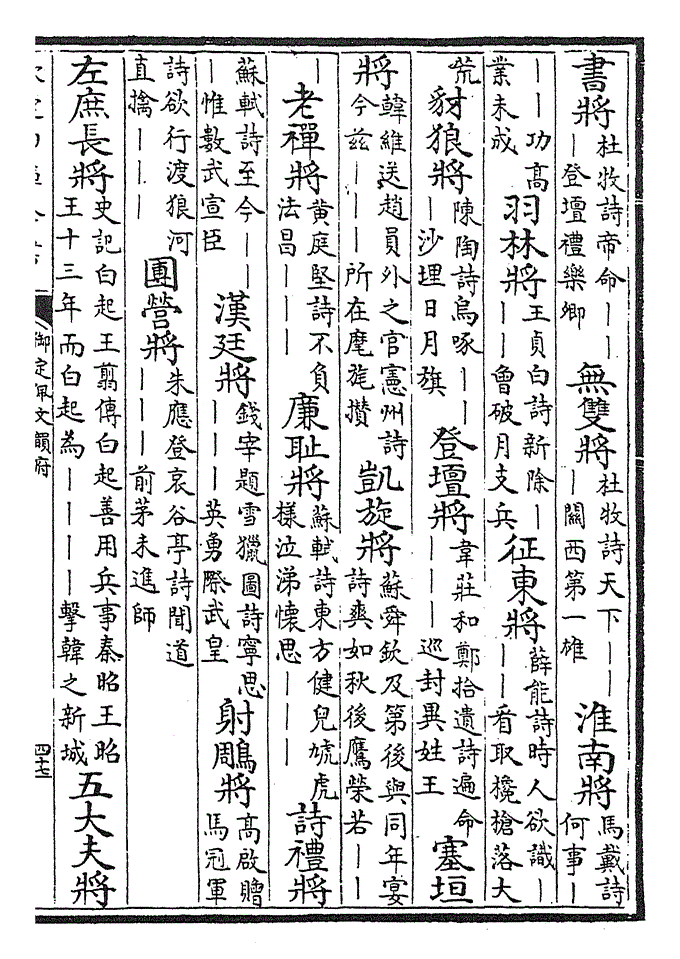 書將 杜牧詩帝命｜｜｜登壇禮樂卿 無雙將 杜牧詩天下｜｜｜關西第一雄 淮南將 馬戴詩何事｜
｜｜功高業未成 羽林將 王貞白詩新除｜｜｜曾破月支兵 征東將 薛能詩時人欲識｜｜｜看取欃槍落大
荒 豺狼將 陳陶詩烏啄｜｜｜沙埋日月旗 登壇將 韋莊和鄭拾遺詩遍命｜｜｜巡封異姓王 塞垣
將 韓維送趙員外之官憲州詩今茲｜｜｜所在麾旄攢 凱旋將 蘇舜欽及第後與同年宴詩爽如秋後鷹榮若｜｜
｜ 老禪將 黃庭堅詩不負法昌｜｜｜ 廉耻將 蘇軾詩東方健兒虓虎樣泣涕懷思｜｜｜ 詩禮將
蘇軾詩至今｜｜｜惟數武宣臣 漢廷將 錢宰題雪獵圖詩寧思｜｜｜英勇際武皇 射鵰將 高啟贈馬冠軍
詩欲行渡狼河直擒｜｜｜ 團營將 朱應登哀谷亭詩聞道｜｜｜前茅未進師
左庶長將 史記白起王翦傳白起善用兵事秦昭王昭王十三年而白起為｜｜｜｜擊韓之新城 五大夫將
御定佩文韻府 四十七